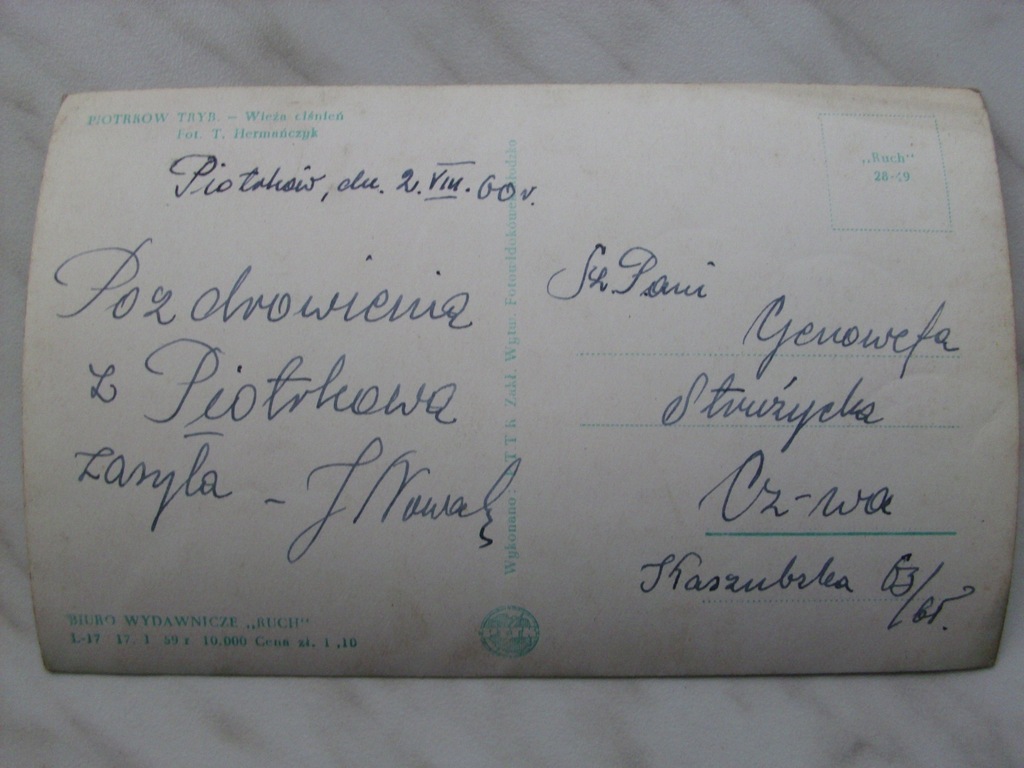 PIOTRKOW TRYB. – Wieża ciśnień
Fot. T. Hermańczyk
Piotrków, dn. 2.VIII.60r.
Pozdrowienia
z Piotrkowa
zasyła – J Nowak
BIURO WYDAWNICZE „RUCH"
L-17 17. I 59 r 10.000 Cena zł. 1,10
Wykonano: PTTK Zakł. Wytw. Foto Kłodzko
„Ruch"
28-49
Sz. Pani
Genowefa
Strużycka
Cz-wa
Kaszubska 63/65.